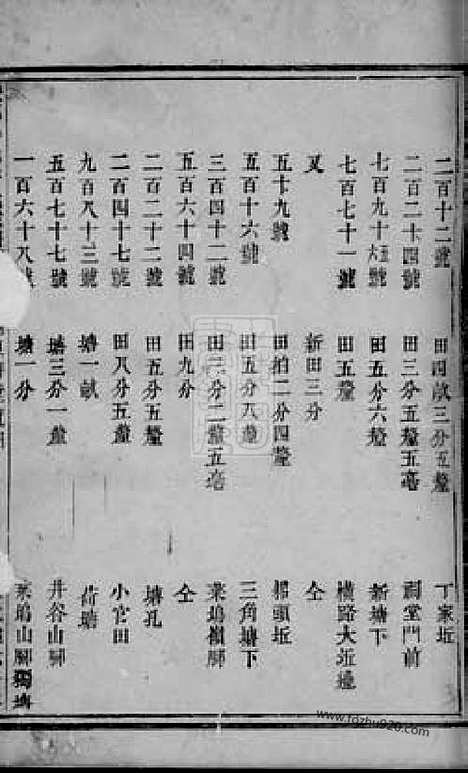 二百十二號 田四畝三分五釐 丁家坵
二百二十四號 田三分五釐五毫 祠堂門前
七百九十五號 田五分六釐 新塘下
七百七十一號 田五釐 橫路大坵邊
又 新田三分 仝
五十九號 田拍二分四釐 頭坵
五百十六號 田五分八釐 三角塘下
三百四十二號 田二分二釐五毫 葉塢 脚
五百六十四號 田九分 仝
二百二十二號 田五分五釐 塘孔
二百四十七號 田八分五釐 小官田
九百八十三號 塘一畝 荷塘
五百七十七號 塘三分一釐 井谷山脚
一百六十八號 塘一分 葉塢山脚獨塘
www.fozhu920.com